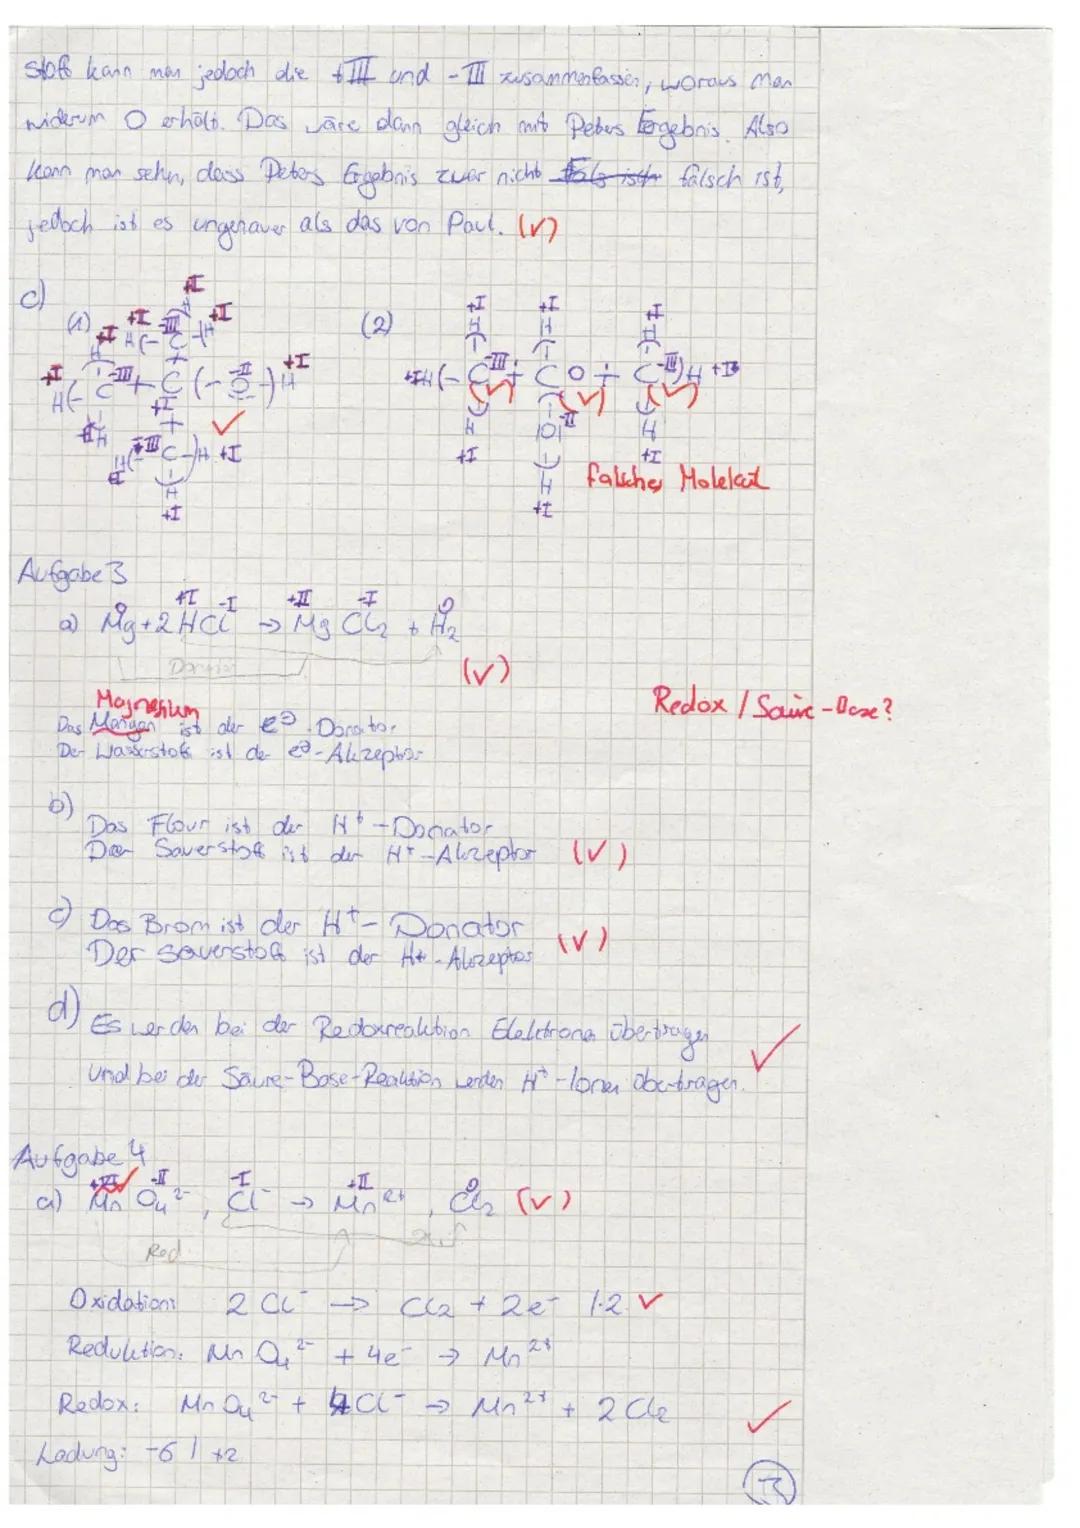 stoff kann man jedoch die +III und -III zusammenfassen, woraus man
widerum 0 erhält. Das wäre dann gleich mit Peters Ergebnis. Also
kann man sehn, dass Peters Ergebnis zwar nicht falsch ist,
jedoch ist es ungenauer als das von Paul. (✓)
c)
(1)
(2)
falsches Molekül
Aufgabe 3
a) Mg + 2 HCl → MgCl2 + H2
0 +I -I +II -I 0
(✓)
Redox / Säure-Base?
Magnesium
Das Mangan ist der e⊖-Donator
Der Wasserstoff ist der e⊖-Akzeptor
b)
Das Flour ist der H+-Donator
Der Sauerstoff ist der H+-Akzeptor (✓)
c) Das Brom ist der H+-Donator
Der Sauerstoff ist der H+-Akzeptor (✓)
d) Es werden bei der Redoxreaktion Elektronen übertragen
und bei der Säure-Base-Reaktion werden H+-Ionen übertragen. ✓
Aufgabe 4
+VI -II -I +II 0
a) MnO4 2-, Cl- → Mn2+, Cl2 (✓)
Red
Oxidation: 2 Cl- → Cl2 + 2e- |·2 ✓
Reduktion: MnO4 2- + 4e- → Mn2+
Redox: MnO4 2- + 4Cl- → Mn2+ + 2 Cl2 ✓
Ladung: -6 | +2